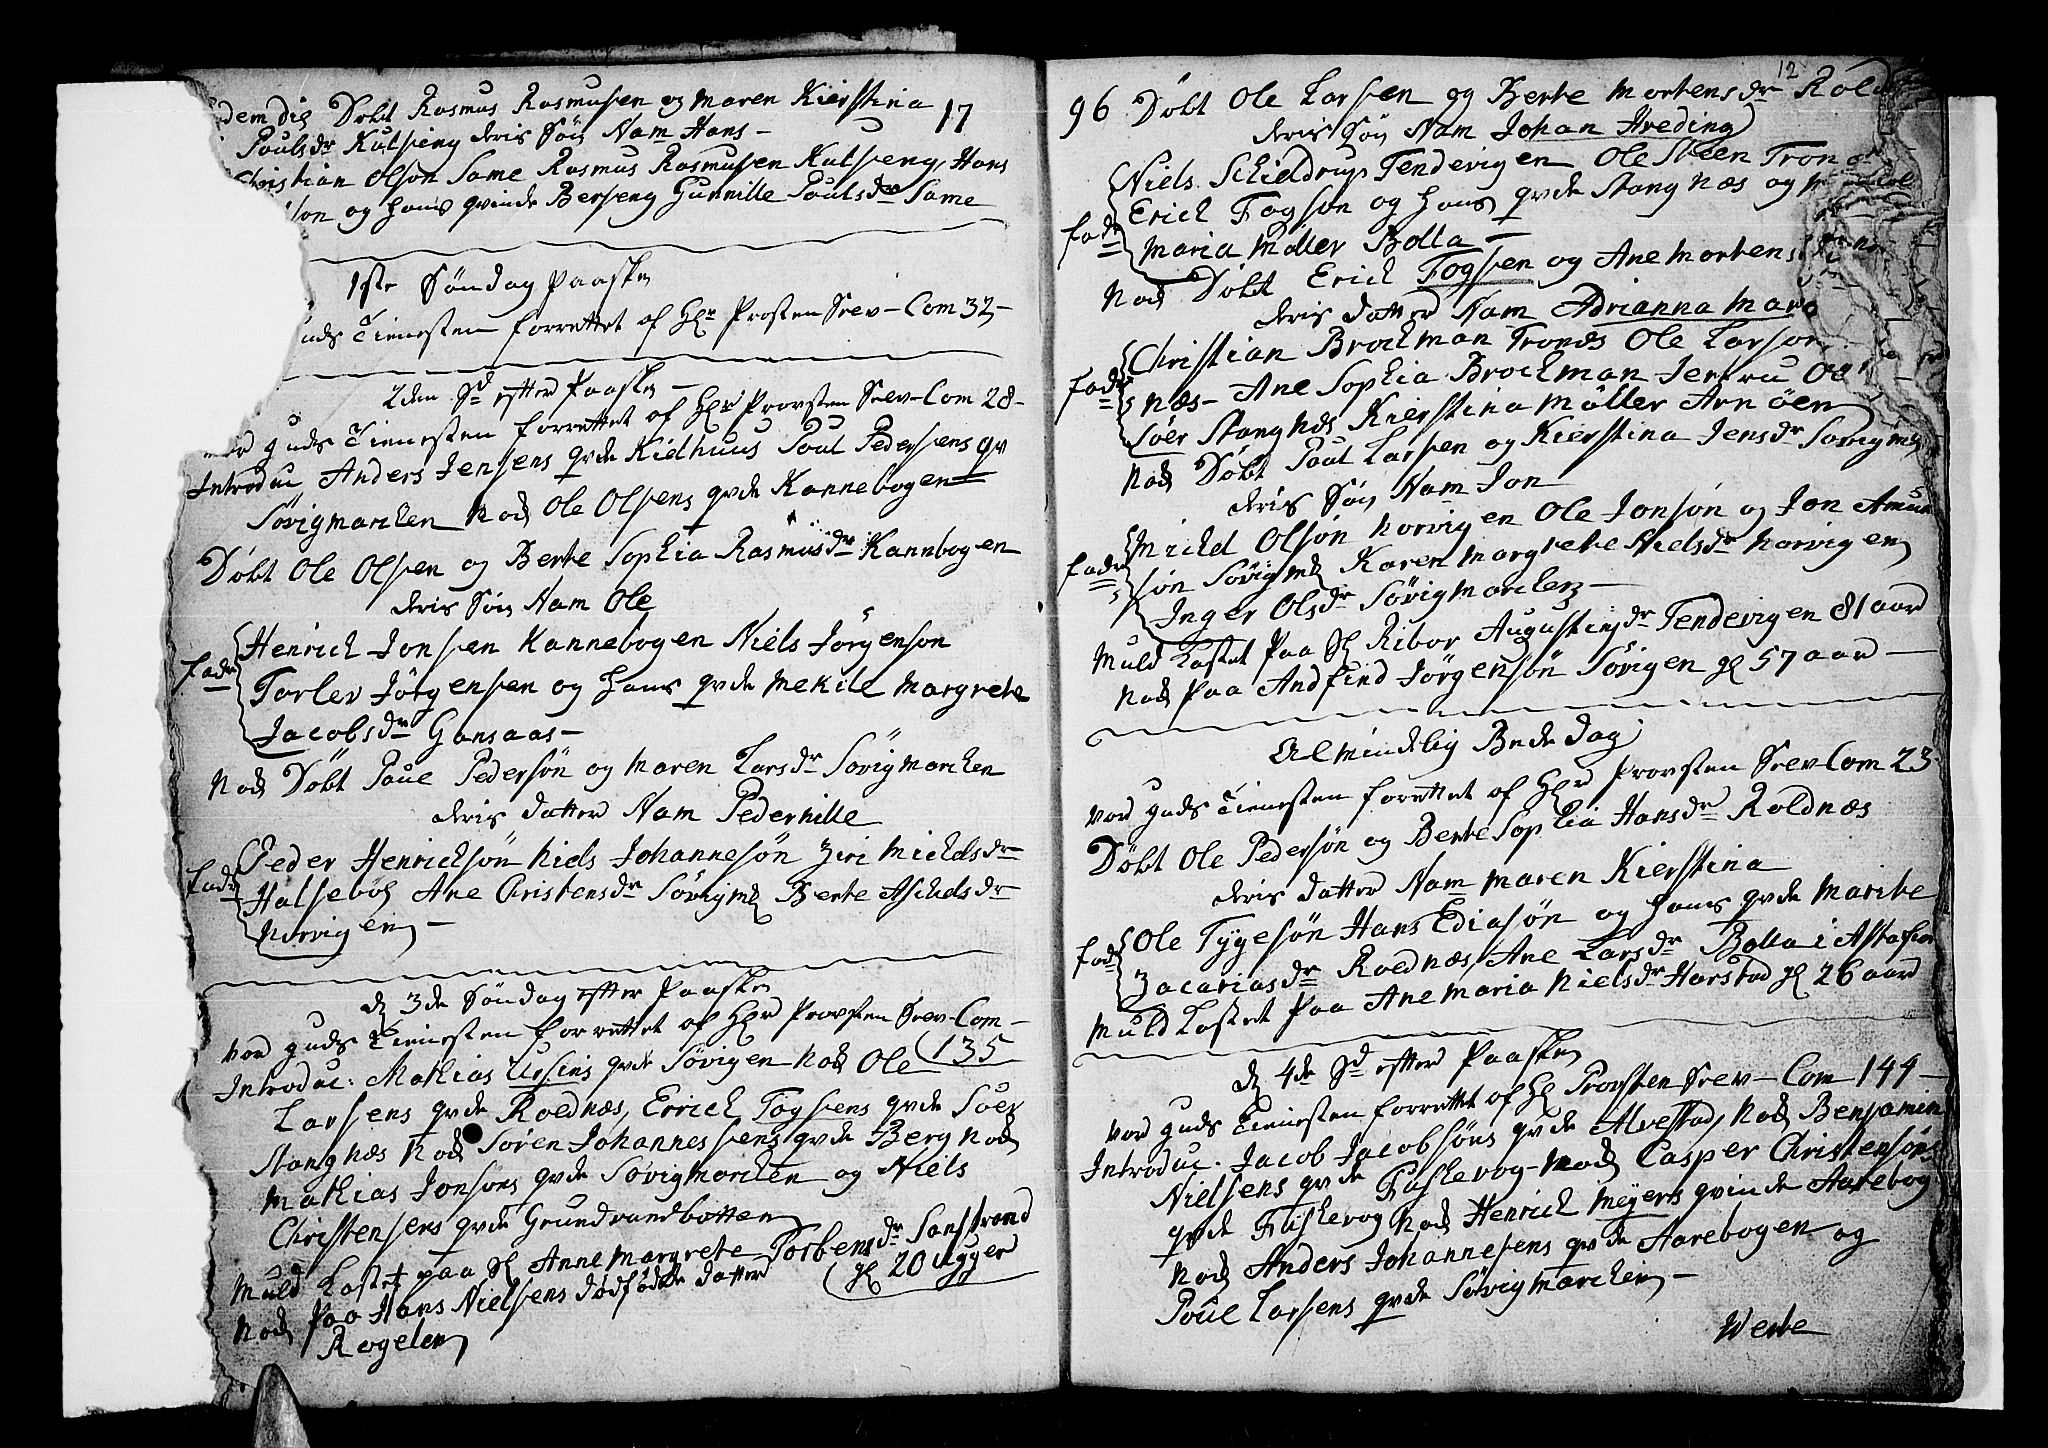 dem die Døbt Rasmus Rasmusen og Maren Kierstina
Poulsdr Kulseng deris Søn Nam Hans -
Christian Olson Same Rasmus Rasmusen Kulseng, Hans
son og hans qvinde Berseng Gunnille Poulsdr Same
17
1ste Søndag Paaske
uds Tienesten forrettet af Hr Prosten Srev- Com 32-
2den Sd efter Paaske -
guds Tienesten forrettet af Hr Provsten Srev- Com 28-
Introduc Anders Jensens qvde Kielhuus Poul Pedersens qv
Søvigmarcken Nok Ole Olsens qvde Kannebogen
Døbt Ole Olsen og Berte Sophia Rasmusdr Kannbogen
deris Søn Nam Ole
fadr Henrich Jonsen Kannebogen Niels Jørgenson
Torlev Jørgensen og hans qvde Mekile Margrete
Jacobsdr Gansaas -
Nok Døbt Poue Pedersøn og Maren Larsdr Søvigmarcken
deris datter Nam Pedernille
fadr Peder Henricksøn Niels Johannesøn Ziri Michelsdr
Halsebog Ane Christensdr Søvigmk Berte Aschelsdr
Norvigen -
D 3de Søndag efter Paaske
vor guds Tienesten forrettet af Hr Provsten Srev- Com -
135
Introduc: Mathias Ursins qvde Søvigen Nok Ole
Larsens qvde Roldnæs, Errich Fogsens qvde Soer
Stangnæs Nok Søren Johannessens qvde Berg Nok
Mathias Jonsons qvde Søvigmarcken og Niels
Christensens qvde Grundrandbotten
Muld Kastet paa Sl Anne Margrete Torbensdr Sanstrand
gl 20 Ugger
Nok Paa Hans Nielsens dødfødde datter
Rogelen
12
96 Døbt Ole Larsen og Berte Mortensdr Rold
deris Søn Nam Johan Hveding
fadr Niels Schieldrup Tendevigen Ole Steen Tron
Erich Fogson og hans qvde Stangnæs og
Maria Møller Bolla -
Nok Døbt Erich Fogsen og Ane Mortens
deris datter Nam Adrianna Mar
fadr Christian Brockman Tronæs Ole Larson
Næs - Ane Sophia Brockman Jertru
Soer Stangnæs Kierstina Møller Arnøen
Nok Døbt Poul Larsen og Kierstina Jensdr Søvigmk
deris Søn Nam Jon
fadr Michel Olsøn Norvigen Ole Jonsøn og Jon Amun
søn Søvigmk Karen Margrete Nielsdr Norvigen
Inger Olsdr Søvigmarcken -
Muld Kastet Paa Sl Ribor Augustinjdr Tendevigen 81 aar
Nok Paa Andfind Jørgensøn Søvigen gl 57 aar -
Almindelig Bede Dag
vor guds Tienesten forrettet af Hr Provsten Srev Com 23-
Døbt Ole Pedersøn og Berte Sophia Hansdr Roldnæs
deris datter Nam Maren Kierstina
fadr Ole Tygesøn Hans Ediasøn og hans qvde Maritte
Zacariasdr Roldnæs, Ane Larsdr Bolla i Astafior
Muld Kastet Paa Ane Maria Nielsdr Harstad gl 26 aar
D 4de Sd efter Paasken
vor guds Tienesten forrettet af Hr Provsten Srev- Com 144 -
Introduc. Jacob Jacobsøns qvde Alvestad, Nok Benjamin
Nielsens qvde Faskevog - Nok Casper Christensøns
qvde Fiskevog Nok Henrich Meyers qvinde Aarebog
Nok Anders Johannesens qvde Aarebogen og
Poue Larsens qvde Søvigmarcken -
Werte